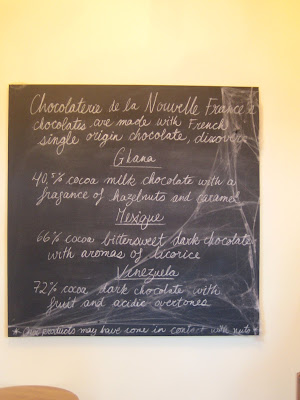 Chocolaterie de la Nouvelle France's
chocolates are made with French
single origin chocolate, discover
Ghana
40,5% cocoa milk chocolate with a
fragance of hazelnuts and caramel
Mexique
66% cocoa bittersweet dark chocolate
with aromas of licorice
Venezuela
72% cocoa dark chocolate with
fruit and acidic overtones
* Our products may have come in contact with nuts *